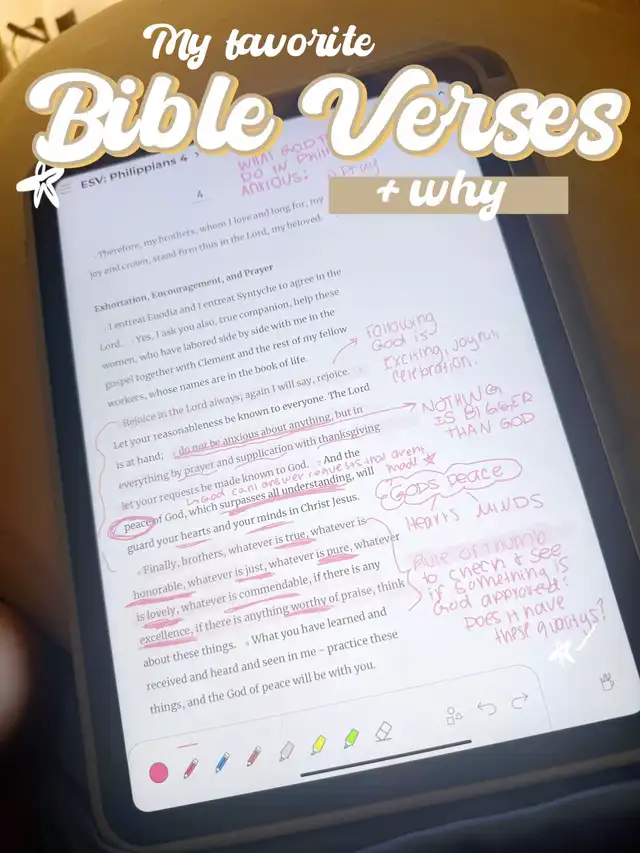 My favorite
Bible Verses
+ why
ESV: Philippians 4
WHAT GOD T
DO IN PHILI
ANXIOUS: pray
4
Therefore, my brothers, whom I love and long for, my
joy and crown, stand firm thus in the Lord, my beloved.
Exhortation, Encouragement, and Prayer
I entreat Euodia and I entreat Syntyche to agree in the
Lord. Yes, I ask you also, true companion, help these
women, who have labored side by side with me in the
gospel together with Clement and the rest of my fellow
workers, whose names are in the book of life.
Rejoice in the Lord always; again I will say, rejoice.
Let your reasonableness be known to everyone. The Lord
is at hand; do not be anxious about anything, but in
everything by prayer and supplication with thanksgiving
let your requests be made known to God. And the
God can't answer requests that arent
made
peace of God, which surpasses all understanding, will
guard your hearts and your minds in Christ Jesus.
Finally, brothers, whatever is true, whatever is
honorable, whatever is just, whatever is pure, whatever
is lovely, whatever is commendable, if there is any
excellence, if there is anything worthy of praise, think
about these things. What you have learned and
received and heard and seen in me – practice these
things, and the God of peace will be with you.
Following
God is
Exciting, Joyful,
celebration.
NOTHING
IS BIGGER
THAN GOD
GODS peace
Hearts MINDS
Rule of thumb
to check & see
if something is
God approved:
Does it have
these qualitys?